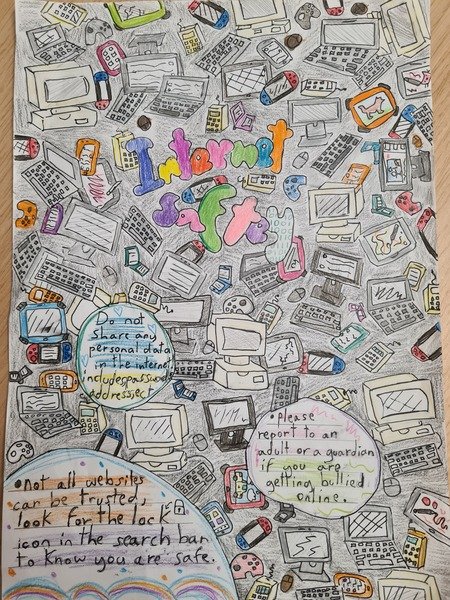 Internet
Saftey
Do not
share any
personal data
in the internet
includes passwords
addresses ect
• Please
report to an
adult or a guardian
if you are
getting bullied
online.
• Not all websites
can be trusted,
look for the lock
icon in the search bar
to know you are safe.